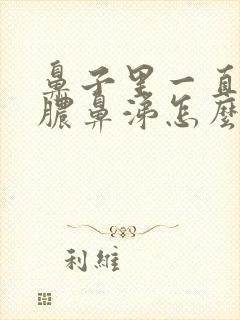 鼻子里一直
膿鼻涕怎麼
利維